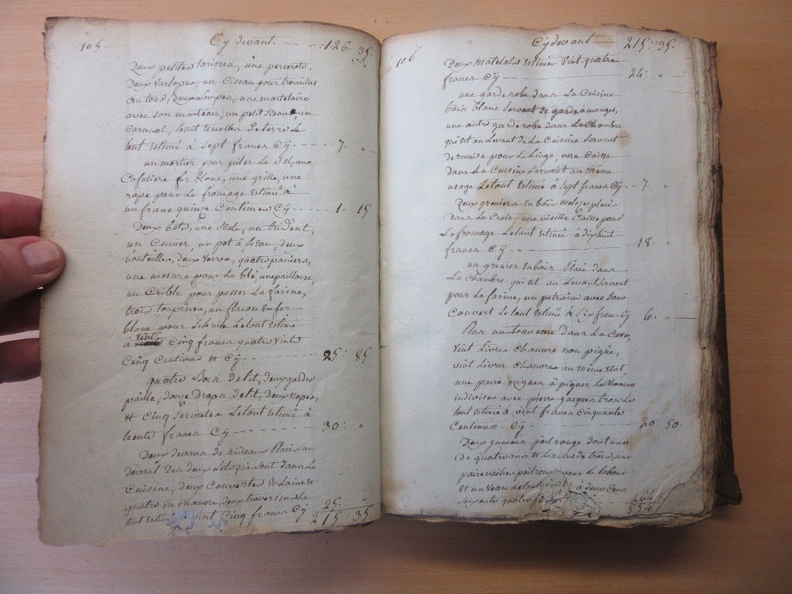 105 Cy devant 126. 35.
Deux petites tarieres, une percerete,
Deux Varlopes, un Ciseau pour travailler
au tour, Deux
avec son marteau, un petit un
Le tout
tout estimé à Sept francs Cy 7. "
un mortier pour piler Le Sel, une
Cafetiere fer blanc, une grille, une
rape pour Le fromage estimé à
un franc quinze Centimes Cy 1. 15
Deux bats, une un trident,
un Cuvier, un pot à Leau, deux
bouteilles, deux Verres, quatre paniers,
une mesure pour Le blé, une paillasse,
un Crible pour passer La farine,
trois toupines, un flacon en fer
blanc pour Lehuile Le tout estimé
à Vint Cinq francs quatre Vints
Cinq Centimes et Cy 25: 85
quatre Bois de lit, deux gardes
paille, douze Draps de lit, deux Napes,
et Cinq Serviettes Le tout estimé à
trente francs Cy 30: "
Deux devans de Rideaux Placés au
devant des deux Lits que sont dans La
Cuisine, deux Couvertes en Laine et
quatre de Chanvre, deux traversins Le
tout estimé à Vint Cinq francs Cy 25: "
215 35
106 Cy devant 215: 35.
Deux matelats estimés Vint quatre
francs Cy 24: "
une garde robe dans La Cuisine
bois blanc Servant de garde manger,
une autre garde robe dans La Chambre
qui est au Levant de La Cuisine Servant
de remise pour Le Linge, une Caisse
dans La Cuisine Servant au même
usage Le tout estimé à Sept francs Cy 7. "
Deux greniers en bois meleze placé
dans La une vieille Caisse pour
Le fromage Le tout estimé à dix huit
francs Cy 18. "
un grenier en bois Placé dans
La Chambre qui est au Levant Servant
pour La farine, un petrain avec Son
Couvert Le tout estimé à Six francs Cy 6. "
Plus un tonneau dans La Cave,
Vint Livres Chanvre non pigné,
Vint Livres Chanvre au même état,
une paire à pigner Le Chanvre
indivises avec pierre Le
tout estimé à vint francs Cinquante
Centimes. Cy 20. 50.
Deux jumens poil rouge dont une
de quatre ans et La autre de trois, une
paire vaches poil rouge pour Le labour
et un Veau Le tout estimé à deux Cens
Soixante quatre 264
554